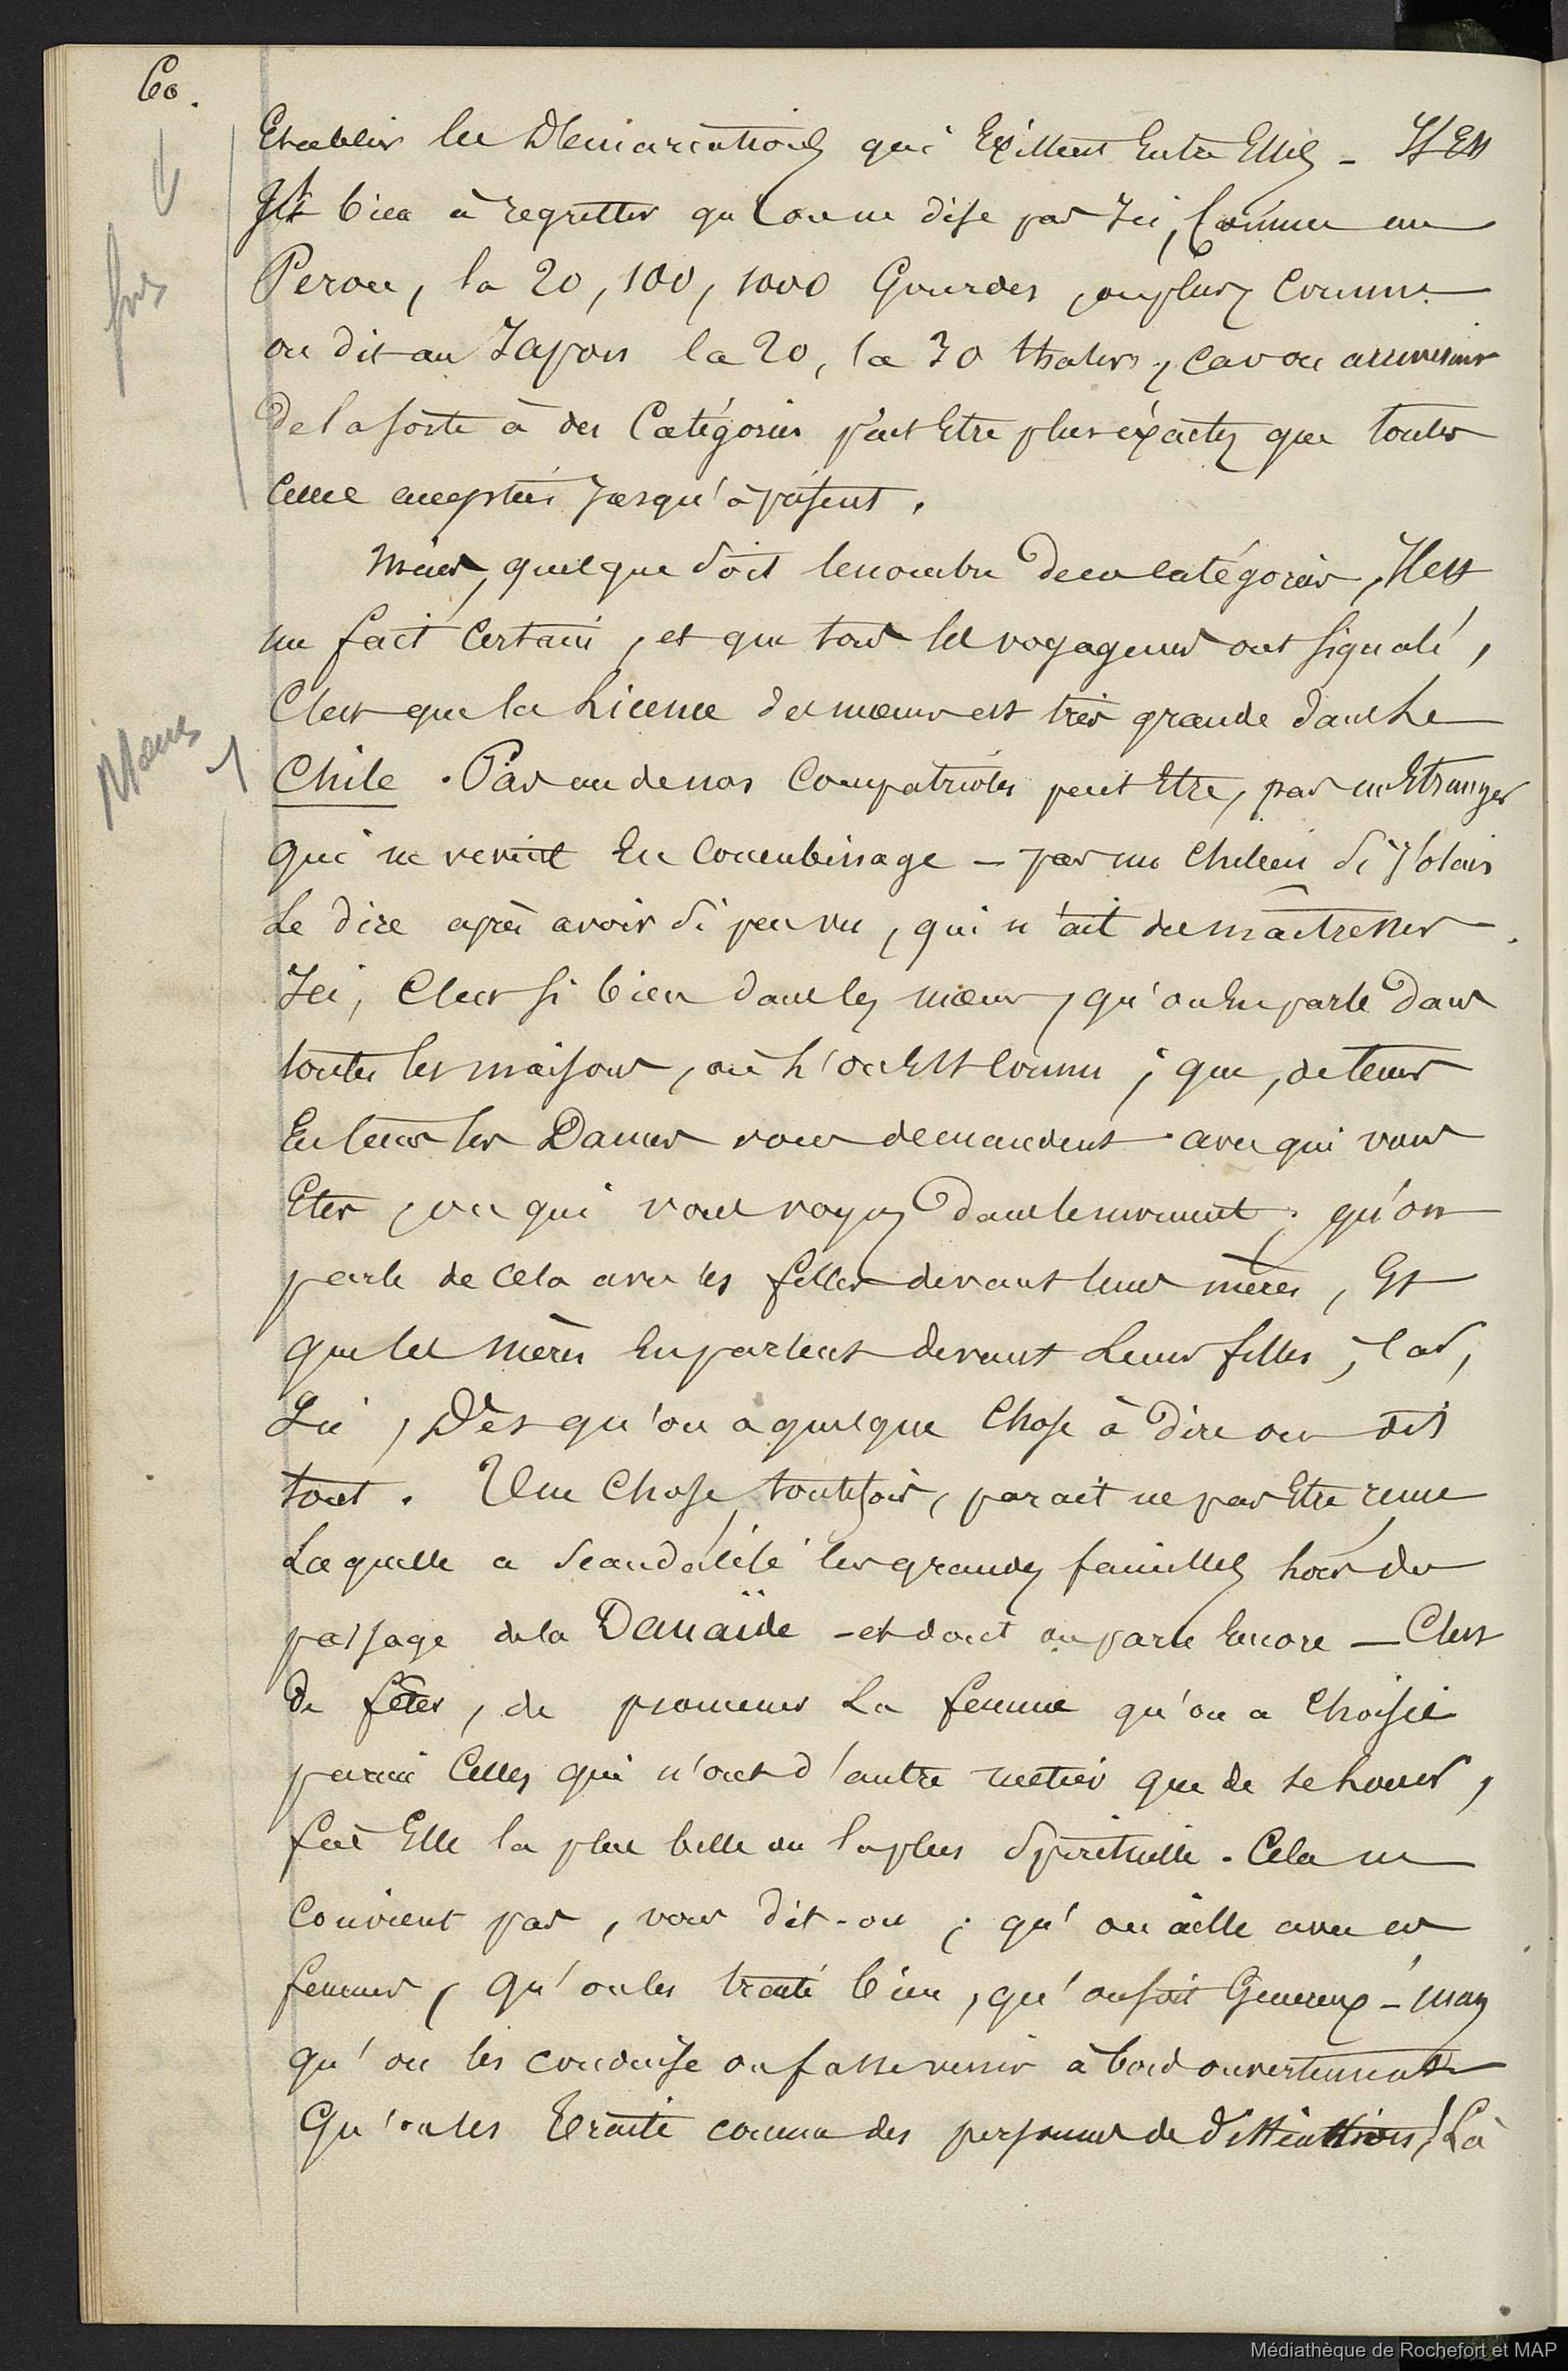 60.
Etablir les Démarcations qui Existent Entre Elles - Il Est
Il est bien à regretter qu'on ne dise pas Ici, Comme au
Perou, la 20, 100, 1000 Gourdes, ou plus, Comme
on dit au Japon la 20, la 30 thalers, Car on arriverait
De la sorte à des Catégories peut Etre plus éxactes que toutes
Celles acceptées Jusqu'à présent.
Mais, quel que soit le nombre de ces catégories, Il est
un fait certain, et que tous les voyageurs ont signalé,
C'est que la Licence des mœurs est très grande dans Le
Mœurs
Chile. Pas un de nos Compatriotes peut Etre, pas un Etranger
qui ne vive En Concubinage - pas un Chilien si J'olais
Le dire après avoir si peu vu, qui n'ait des maîtresses.
Ici, C'est si bien dans les mœurs, qu'on En parle Dans
toutes les maisons, où l'on Est Connu; que, de tems
En tems les Dames vous demandent avec qui vous
Etes, ou qui vous voyez Dans le moment; qu'on
parle de Cela avec les filles devant leurs mères, Et
que les mères En parlent devant Leurs filles; Car,
Ici, Dès qu'on a quelque Chose à Dire on dit
tout. Une Chose, toutefois, parait ne pas Etre reçue
Laquelle a Scandalisé les grandes familles lors du
passage de la Danaïde - et dont on parle Encore - C'est
De fêter, de promener La femme qu'on a Choisie
parmi Celles qui n'ont d'autre métier que de se louer,
fut Elle la plus belle ou la plus Spirituelle. Cela ne
Convient pas, vous dit-on; qu'on aille avec ces
femmes, qu'on les traite bien, qu'on soit Genereux - mais
qu'on les conduise ou fasse venir à bord ouvertement
Qu'on les traite comme des personnes de distinction! Là